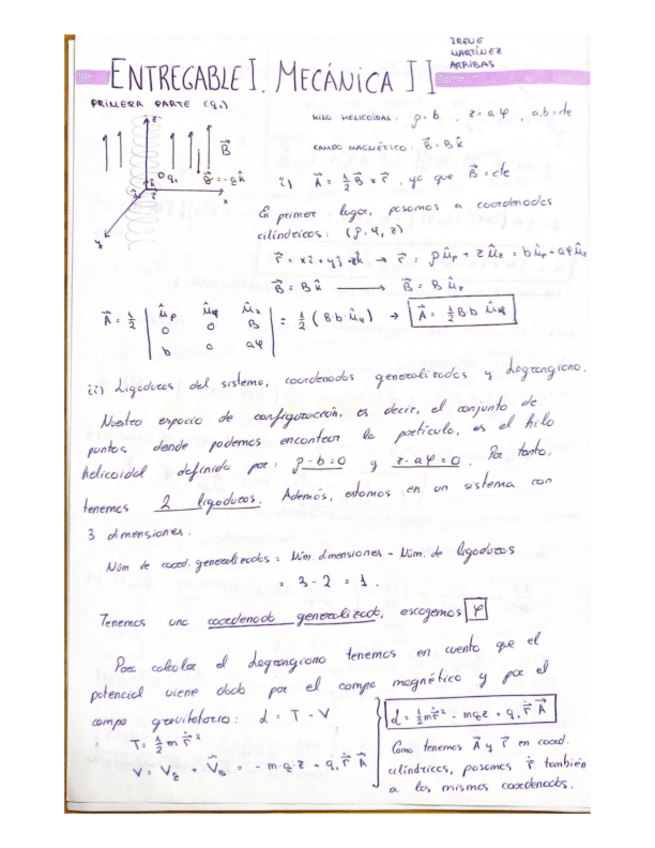 IRENE
MARTÍNEZ
ARRIBAS
ENTREGABLE I. MECÁNICA II
PRIMERA PARTE (q₁)
HILO HELICOIDAL: ρ=b , z=aφ , a,b=cte
CAMPO MAGNÉTICO: B⃗=Bk̂
i) A⃗ = 1/2 B⃗ × r⃗ , ya que B⃗=cte
En primer lugar, pasamos a coordenadas
cilíndricas: (ρ, φ, z)
r⃗ = xî+yĵ+zk̂ → r⃗ = ρûρ + zûz = bûρ + aφûz
B⃗ = Bk̂ → B⃗ = Bûz
A⃗ = 1/2 | ûρ ûφ ûz | = 1/2 (Bb·ûφ) → A⃗ = 1/2 Bb ûφ
0 0 B
b 0 aφ
B⃗
g⃗=-gk̂
z
x
y
ii) Ligaduras del sistema, coordenadas generalizadas y Lagrangiano.
Nuestro espacio de configuración, es decir, el conjunto de
puntos donde podemos encontrar la partícula, es el hilo
helicoidal definido por: ρ-b=0 y z-aφ=0. Por tanto,
tenemos 2 ligaduras. Además, estamos en un sistema con
3 dimensiones.
Núm de coord. generalizadas = Núm. dimensiones - Núm. de ligaduras
= 3-2 = 1.
Tenemos una coordenada generalizada, escogemos φ
Para calcular el Lagrangiano tenemos en cuenta que el
potencial viene dado por el campo magnético y por el
campo gravitatorio: L = T - V
T = 1/2 m ṙ⃗²
V = V⃗g + V⃗B = - m·g·z + q₁ ṙ⃗ A⃗
L = 1/2 mṙ⃗² - mgz + q₁ ṙ⃗ A⃗
Como tenemos A⃗ y r⃗ en coord.
cilíndricas, pasamos ṙ⃗ también
a las mismas coordenadas.